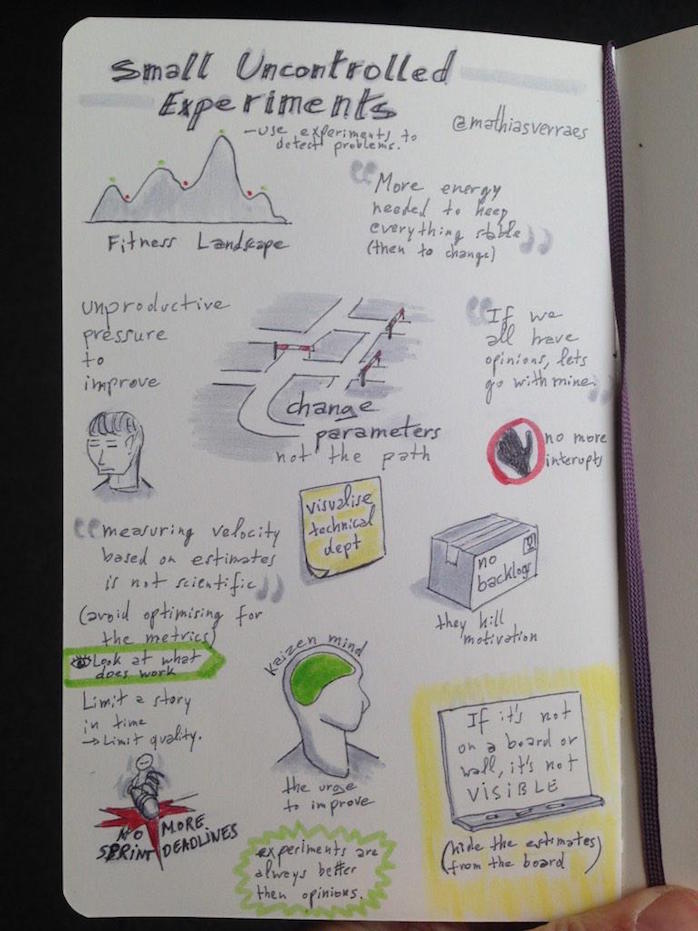 Small Uncontrolled
Experiments
@mathiasverraes
-use experiments to
detect problems.
Fitness Landscape
"More energy
needed to keep
everything stable"
(then to change)
unproductive
pressure
to
improve
change
parameters
not the path
"If we
all have
opinions, lets
go with mine."
no more
interupts
visualise
technical
dept
"measuring velocity
based on estimates
is not scientific"
(avoid optimising for
the metrics)
Look at what
does work
Limit a story
in time
→ Limit quality.
NO MORE
SPRINT DEADLINES
no
backlogs
they kill
motivation
Kaizen mind
the urge
to improve
experiments are
always better
then opinions.
If it's not
on a board or
wall, it's not
VISIBLE
(hide the estimates
from the board)